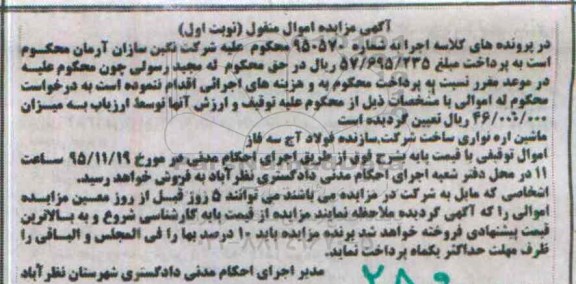 آگهی مزایده اموال منقول (نوبت اول)
در پرونده های کلاسه اجرا به شماره ۹۵۰۵۷۰ محکوم علیه شرکت نگین سازان آرمان محکوم
است به پرداخت مبلغ ۵۷/۶۹۵/۲۳۵ ریال در حق محکوم له مجید رسولی چون محکوم علیه
در موعد مقرر نسبت به پرداخت محکوم به و هزینه های اجرائی اقدام ننموده است به درخواست
محکوم له اموالی با مشخصات ذیل از محکوم علیه توقیف و ارزش آنها توسط ارزیاب به میزان
۴۶/۰۰۰/۰۰۰ ریال تعیین گردیده است
ماشین اره نواری ساخت شرکت سازنده فولاد آج سه فاز
اموال توقیفی با قیمت پایه بشرح فوق از طریق اجرای احکام مدنی در مورخ ۹۵/۱۱/۱۹ ساعت
۱۱ در محل دفتر شعبه اجرای احکام مدنی دادگستری نظرآباد به فروش خواهد رسید.
اشخاصی که مایل به شرکت در مزایده می باشند می توانند ۵ روز قبل از روز معین مزایده
اموالی را که آگهی گردیده ملاحظه نمایند مزایده از قیمت پایه کارشناسی شروع و به بالاترین
قیمت پیشنهادی فروخته خواهد شد برنده مزایده باید ۱۰ درصد بها را فی المجلس و الباقی را
ظرف مهلت حداکثر یکماه پرداخت نماید.
مدیر اجرای احکام مدنی دادگستری شهرستان نظرآباد